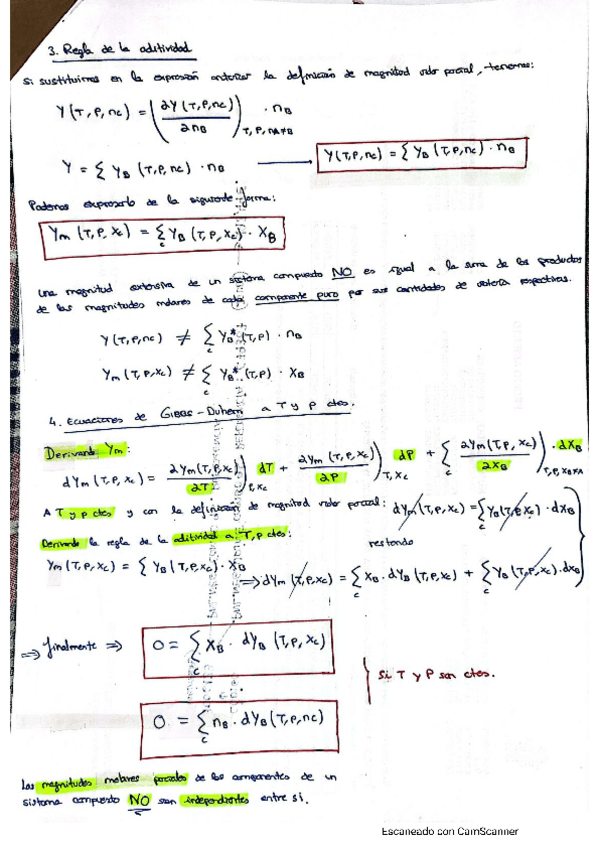 3. Regla de la aditividad
Si sustituimos en la expresión anterior la definición de magnitud molar parcial, tenemos:
Y(T,P,nc) = (∂Y(T,P,nc) / ∂nB)T,P,nA≠B · nB
Y = Σ YB (T,P,nc) · nB ⟶ Y(T,P,nc) = Σ YB (T,P,nc) · nB
Podemos expresarlo de la siguiente forma:
Ym (T,P,xc) = Σc YB (T,P,xc) · XB
Una magnitud extensiva de un sistema compuesto NO es igual a la suma de los productos
de las magnitudes molares de cada componente puro por sus cantidades de materia respectivas.
Y(T,P,nc) ≠ Σc YB* (T,P) · nB
Ym (T,P,xc) ≠ Σc YB* (T,P) · XB
4. Ecuaciones de Gibbs-Duhem a T y P ctes.
Derivando Ym:
dYm (T,P,xc) = ∂Ym(T,P,xc) / ∂T )P,xc dT + ∂Ym (T,P,xc) / ∂P )T,xc dP + Σc ∂Ym(T,P,xc) / ∂XB )T,P,XB≠A · dXB
A T y P ctes y con la definición de magnitud molar parcial: dYm(T,P,xc) = Σc YB(T,P,xc) · dXB
Derivando la regla de la aditividad a T,P ctes:
restando
Ym (T,P,xc) = Σ YB (T,P,xc) · XB ⟹ dYm (T,P,xc) = Σc XB · dYB (T,P,xc) + Σc YB (T,P,xc) · dXB
⟹ finalmente ⟹ 0 = Σc XB · dYB (T,P,xc)
si T y P son ctes.
0 = Σc nB · dYB (T,P,nc)
Las magnitudes molares parciales de los componentes de un
sistema compuesto NO son independientes entre sí.
Escaneado con CamScanner